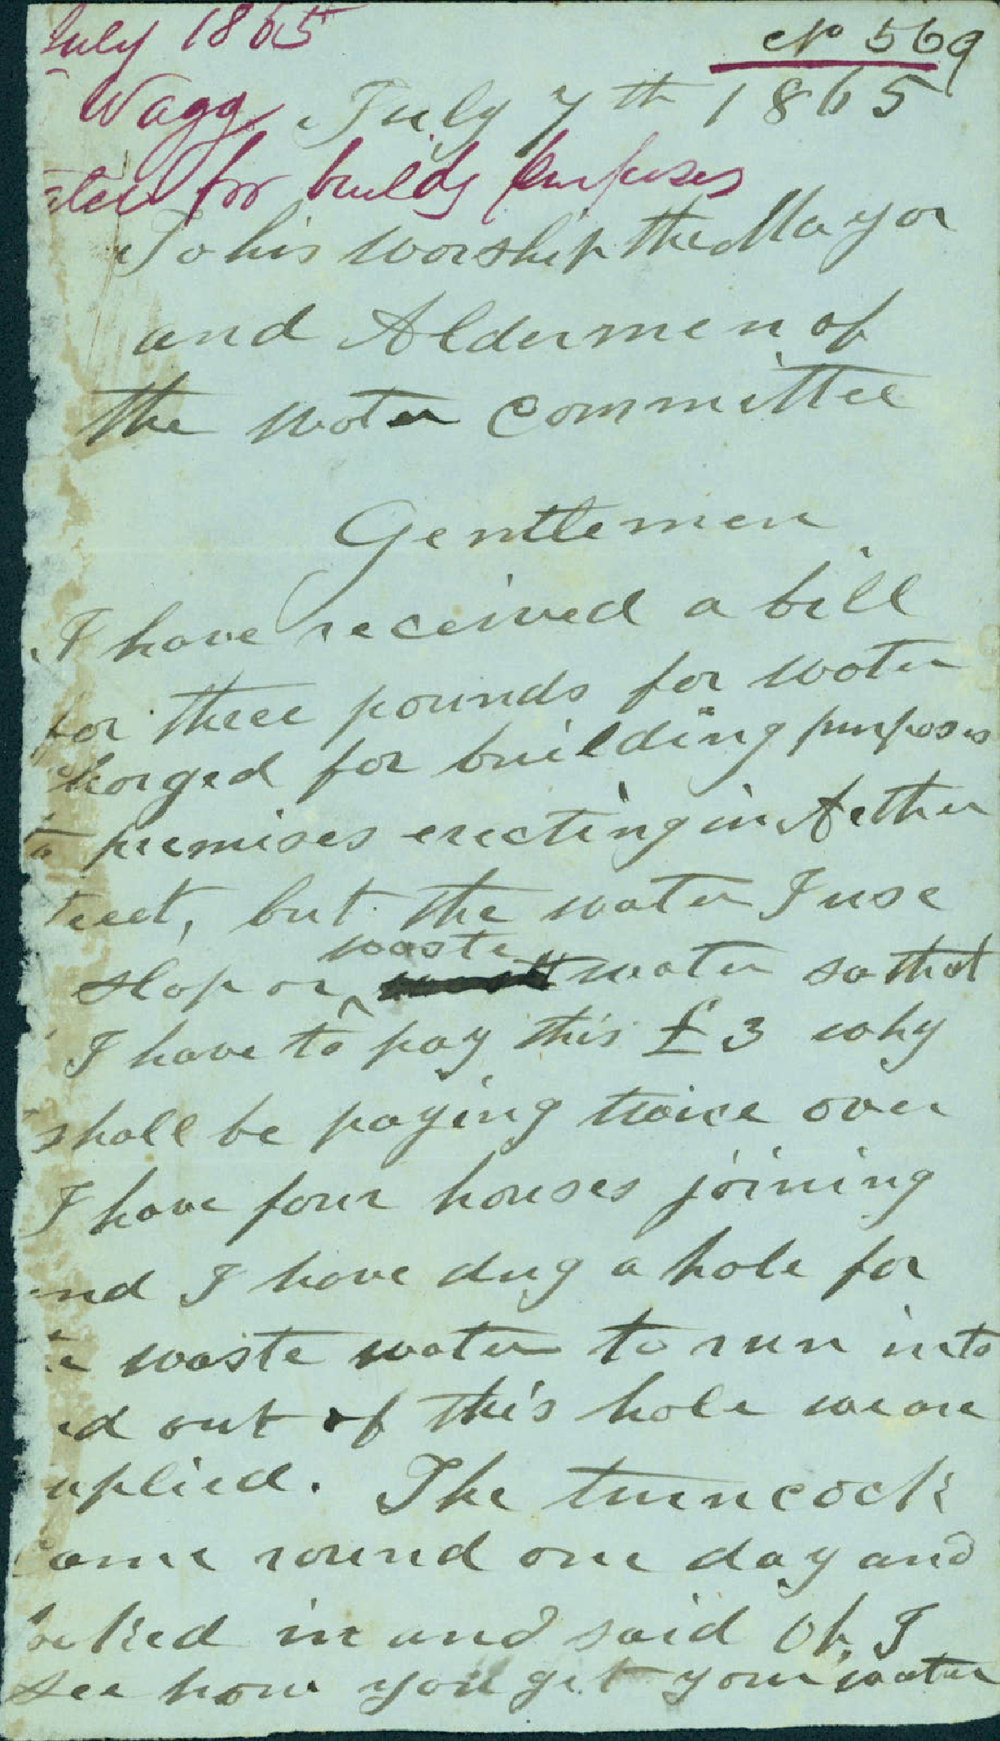 July 1865
No 569
Wagg
July 7th 1865
for buildg purposes
To his worship the Mayor
and Aldermen of
the water committee
Gentlemen
I have received a bill
for three pounds for water
harged for building purposes
to premises erecting in Arther
treet, but the water I use
slop or waste water so that
I have to pay this £3 why
shall be paying twice over
I have four houses joining
nd I have dug a hole for
e waste water to run into
ed out of this hole we are
uplied. The turncock
came round one day and
looked in and said Oh I
see how you get your water